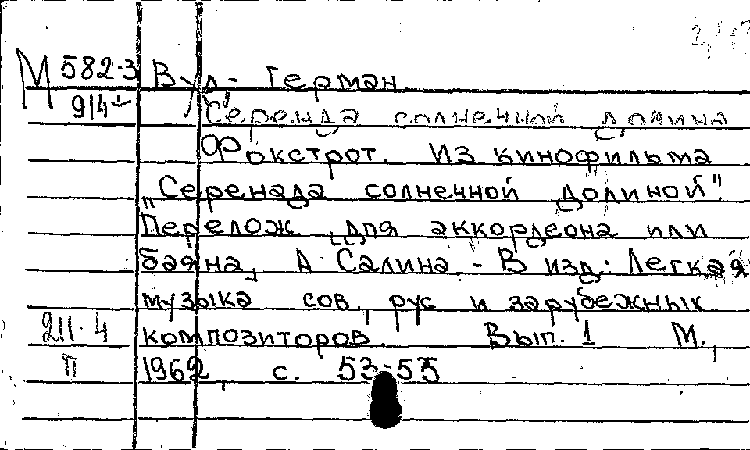 М 582-3 Вуд- Герман
9/4
Серенда солнечной долина
Фокстрот. Из кинофильма
„Серенада солнечной долиной".
Перелож. для аккордеона или
баяна, А Салина. - В изд: Легкая
музыка сов, рус и зарубежных
211-4 композиторов. Вып. 1 М.,
П 1962, с. 53-55